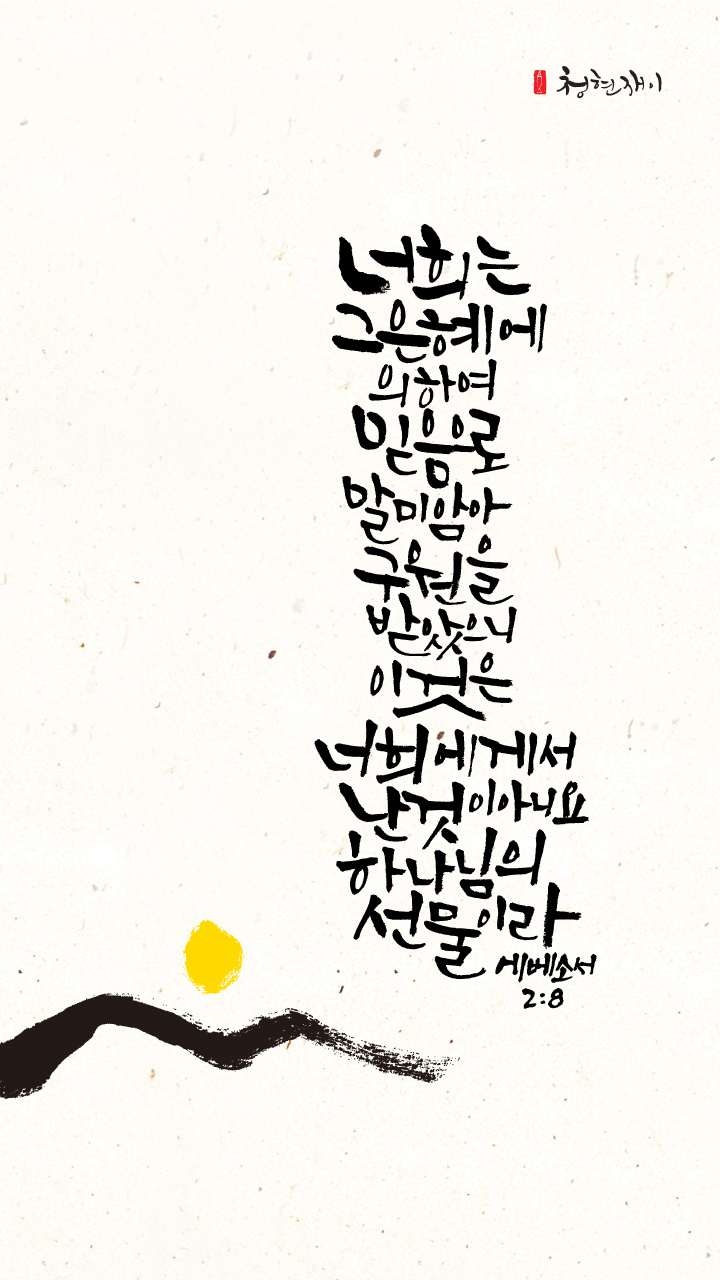 청현재이
너희는
그은혜에
의하여
믿음으로
말미암아
구원을
받았으니
이것은
너희에게서
난것이아니요
하나님의
선물이라
에베소서
2:8